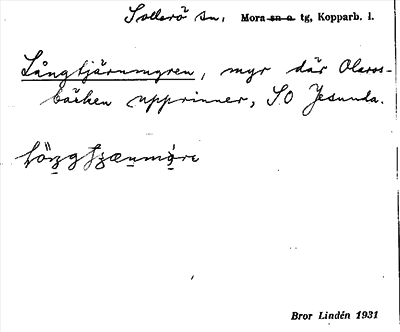 Sollerö sn, Mora sn o. tg, Kopparb. l.
Långtjärnmyren, myr där Olaros-
bäcken upprinner, S.O Jesunda.
Bror Lindén 1931